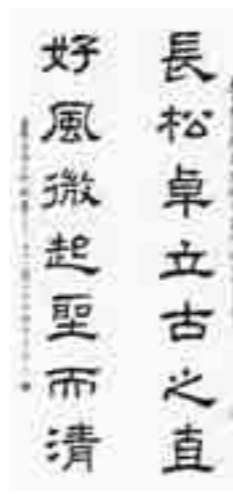 長松卓立古之直
好風微起聖而清